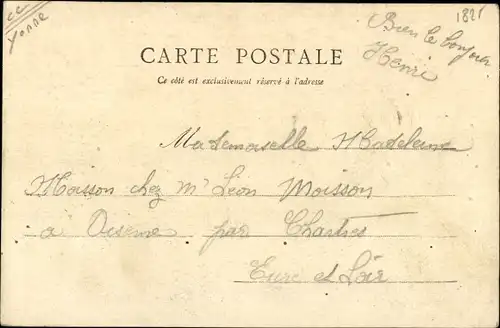 cc
Yonne
1821
Bien le bonjour
Henri
CARTE POSTALE
Ce côté est exclusivement réservé à l'adresse
Mademoiselle Madeleine
Moisson chez Mr Léon Moisson
a Oiseme par Chartres
Eure et Loir